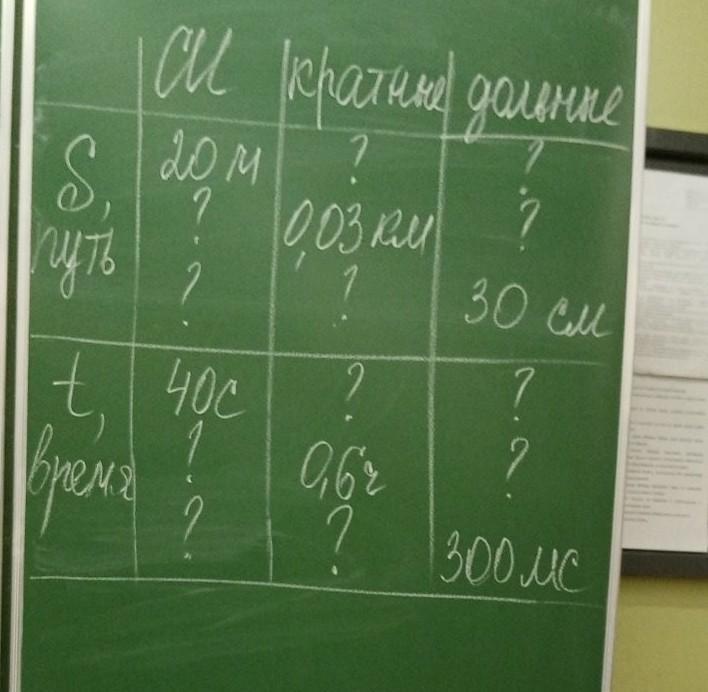 СИ кратные дольные
S, путь 20 м ? ?
? 0,03 км ?
? ? 30 см
t, время 40 с ? ?
? 0,6 ч ?
? ? 300 мс